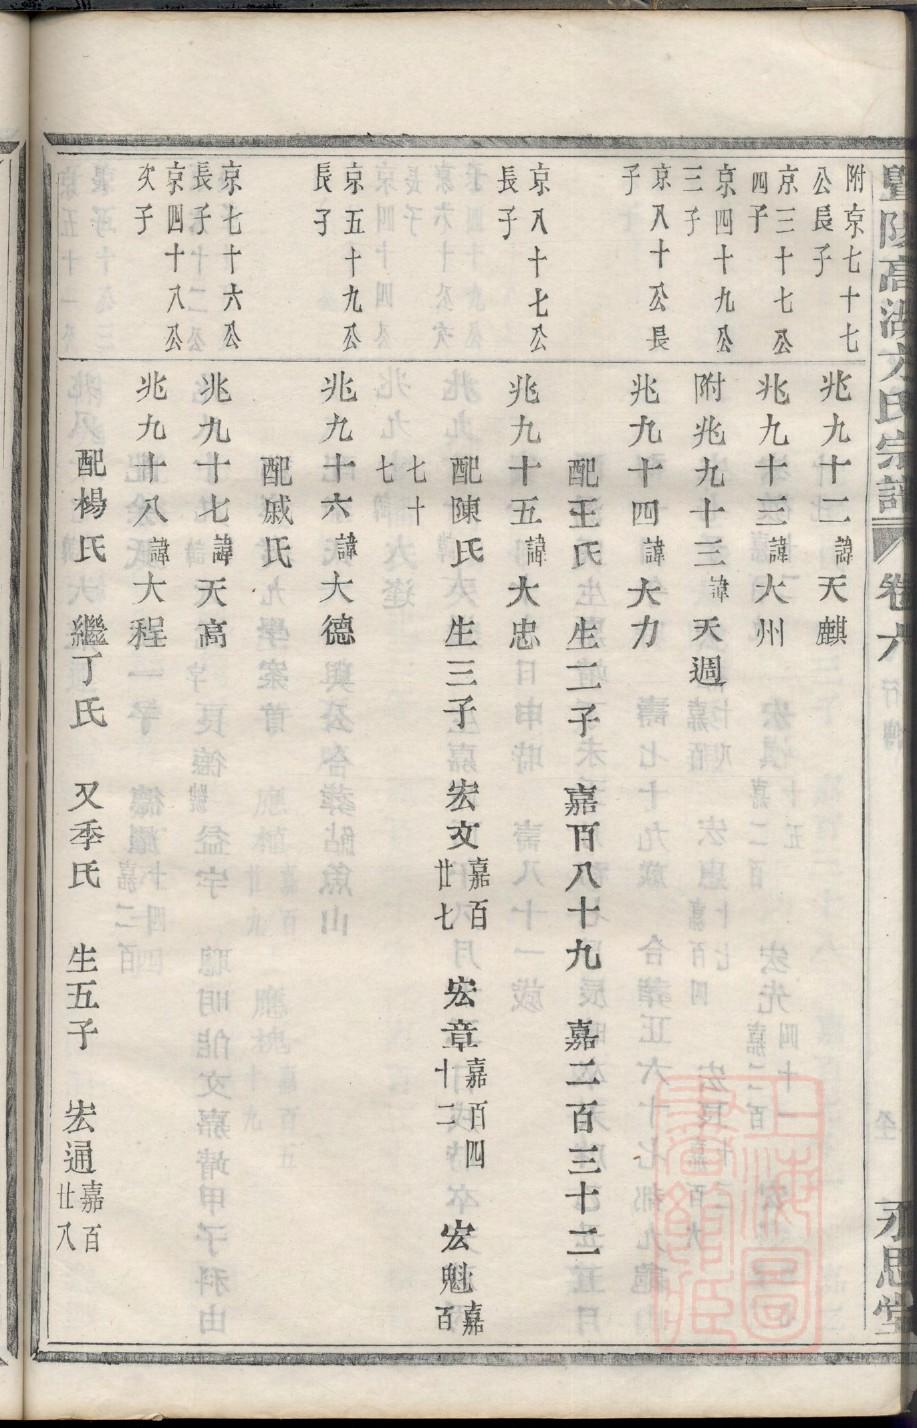 暨陽高湖方氏宗譜 卷六 行傳 永思堂
附京七十七公長子
兆九十二諱天麒
京三十七公四子
兆九十三諱大州
京四十九公三子
附兆九十三諱天週
京八十公長子
兆九十四諱大力
配王氏 生二子 嘉百八十九 嘉二百三十二
京八十七公長子
兆九十五諱大忠
配陳氏 生三子 宏文嘉百廿七 宏章嘉百四十二 宏魁嘉百七十七
京五十九公長子
兆九十六諱大德
配戚氏
京七十六公長子
兆九十七諱天高
京四十八公次子
兆九十八諱大程
配楊氏 繼丁氏 又季氏 生五子 宏通嘉百廿八